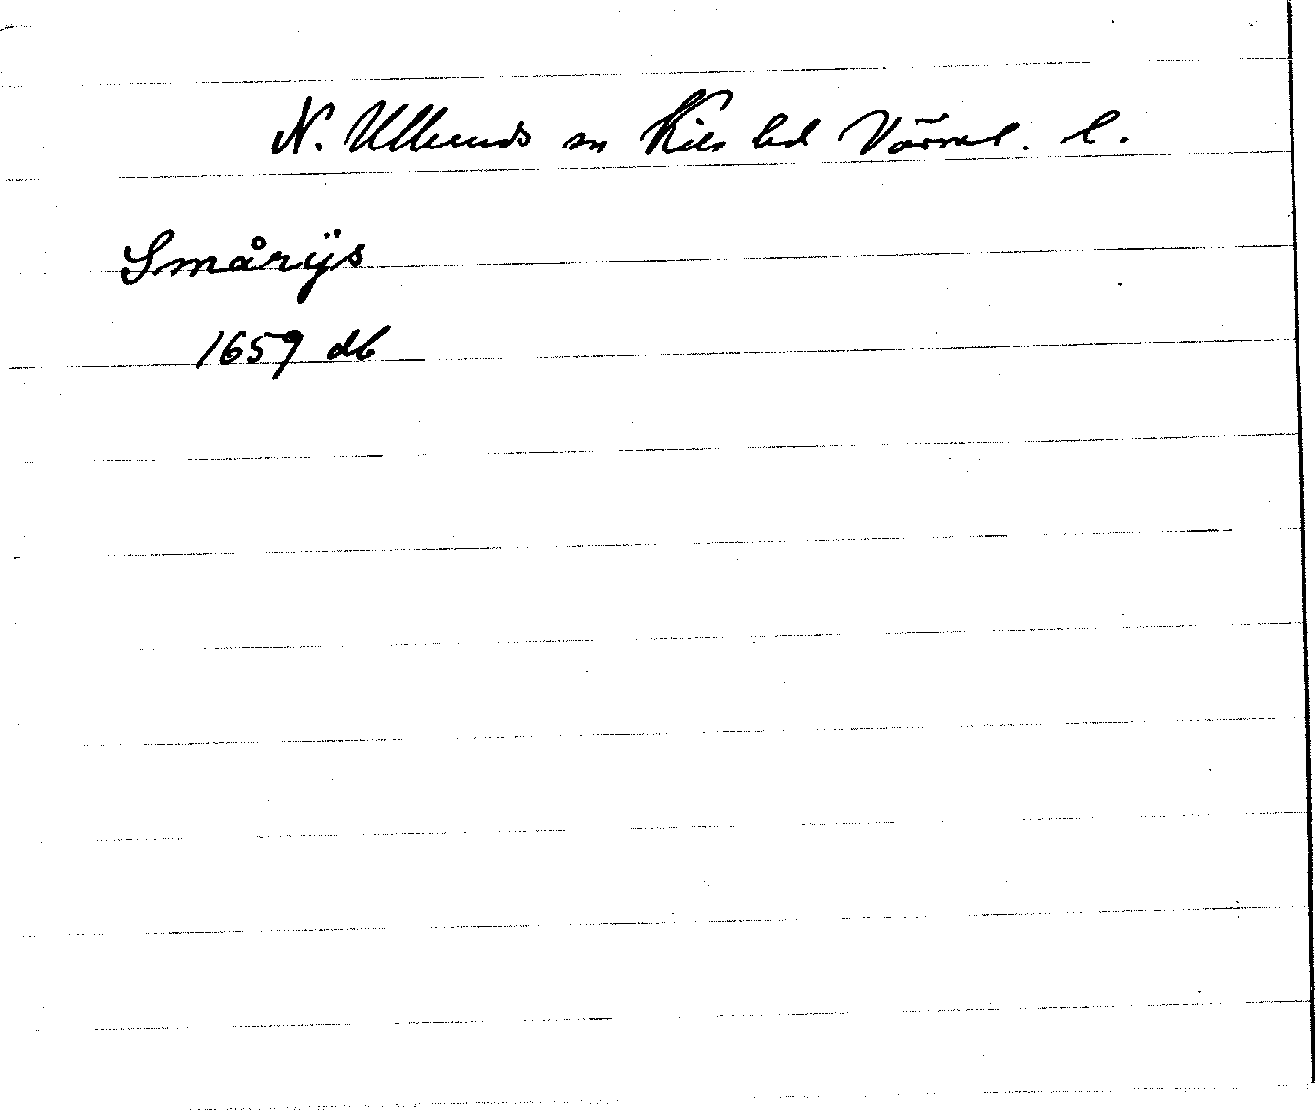 N. Ulleruds sn Kils hd Värml. l.
Smårÿs
1659 db